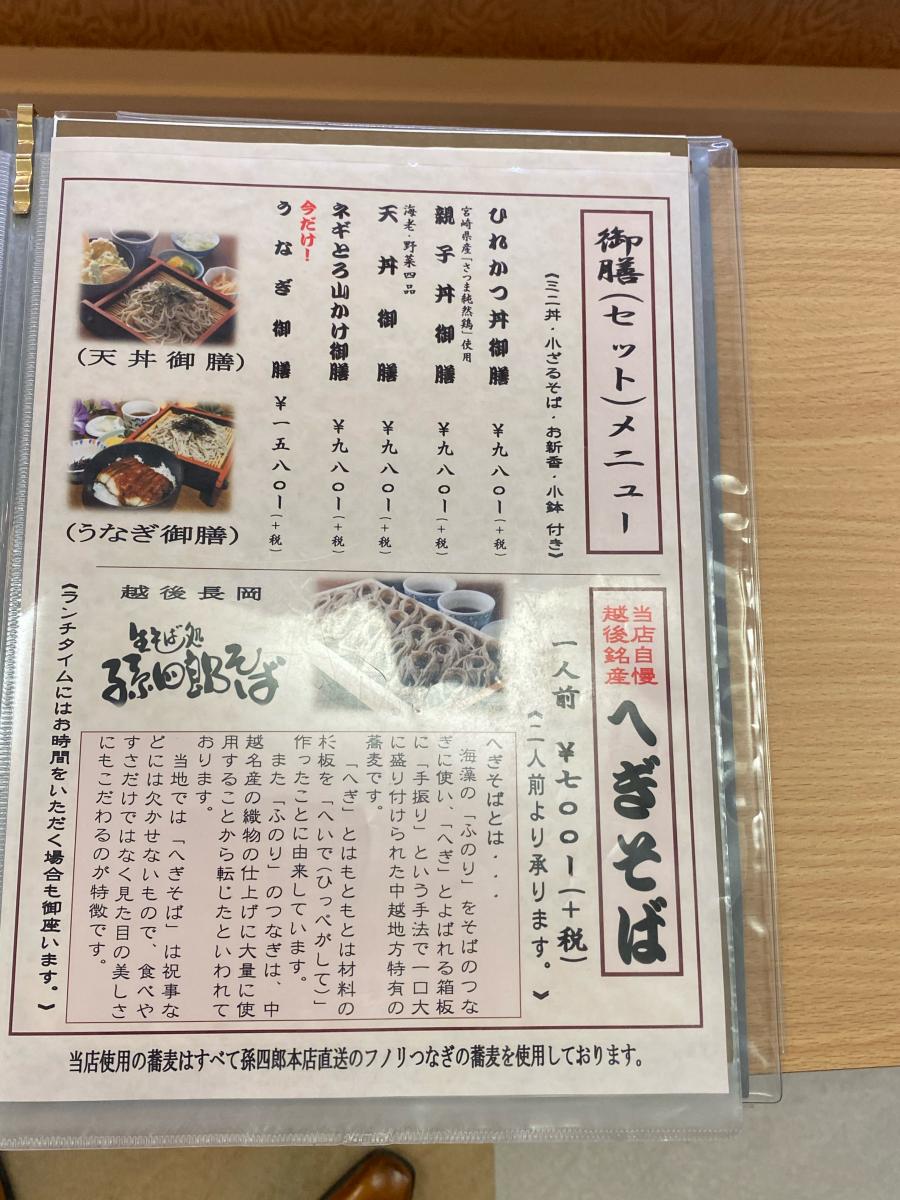 御膳(セット)メニュー
《ミニ丼・小ざるそば・お新香・小鉢 付き》
ひれかつ丼御膳 ¥九八〇ー(+税)
宮崎県産「さつま純然鶏」使用
親子丼御膳 ¥九八〇ー(+税)
海老・野菜四品
天丼御膳 ¥九八〇ー(+税)
ネギとろ山かけ御膳 ¥九八〇ー(+税)
今だけ!
うなぎ御膳 ¥一五八〇ー(+税)
(天丼御膳)
(うなぎ御膳)
当店自慢
越後銘産
へぎそば
一人前 ¥七〇〇ー(+税)
《二人前より承ります。》
越後長岡
生そば処
孫四郎そば
へぎそばとは・・・
海藻の「ふのり」をそばのつな
ぎに使い、「へぎ」とよばれる箱板
に「手振り」という手法で一口大
に盛り付けられた中越地方特有の
蕎麦です。
「へぎ」とはもともとは材料の
杉板を「へいで(ひっぺがして)」
作ったことに由来しています。
また「ふのり」のつなぎは、中
越名産の織物の仕上げに大量に使
用することから転じたといわれて
おります。
当地では「へぎそば」は祝事な
どには欠かせないもので、食べや
すさだけではなく見た目の美しさ
にもこだわるのが特徴です。
《ランチタイムにはお時間をいただく場合も御座います。》
当店使用の蕎麦はすべて孫四郎本店直送のフノリつなぎの蕎麦を使用しております。